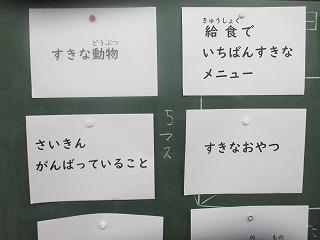 すきな動物
どうぶつ
給食で
きゅうしょく
いちばんすきな
メニュー
さいきん
がんばっていること
5マス
すきなおやつ
の もの